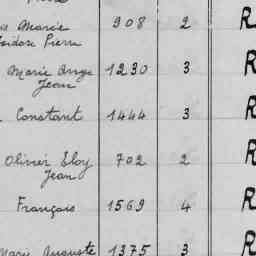 Marie 908 2 R
Isidore Pierre
Marie Ange 1230 3 R
Jean
Constant 1444 3 R
Olivier Eloy 702 2 R
Jean
François 1569 4 R
Marie Auguste 1375 3 R